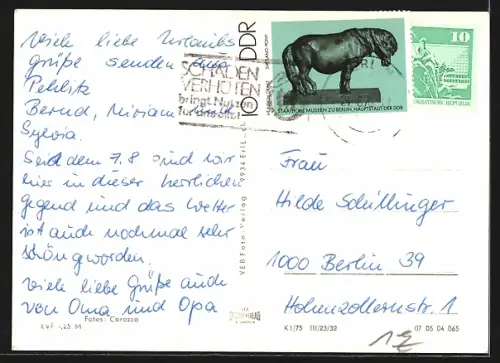 Viele liebe Urlaubs
grüße senden aus
Bernd, Miriam
Sylvia.
Seid dem 7.8 sind wir
hier in dieser herrlichen
gegend und das Wetter
ist auch nochmal sehr
schön geworden.
Viele liebe Grüße auch
von Oma und Opa
Fotos: Carozza
EVP 0,25 M
SCHADEN
VERHÜTEN
bringt Nutzen
für uns alle!
10 DDR
STAATLICHE MUSEEN ZU BERLIN, HAUPTSTADT DER DDR
10
VEB Foto-Verlag 9934 Erlbach
Frau
Hilde Schillinger
1000 Berlin 39
Hohenzollernstr. 1
K1/75 III/23/32
07 05 04 065